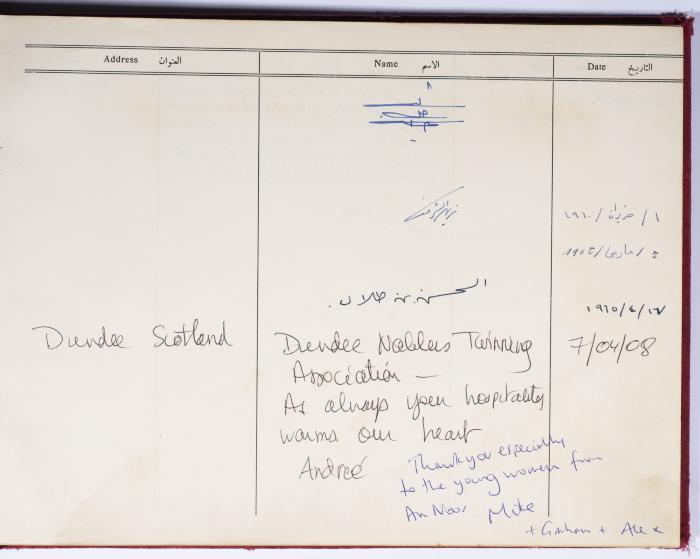 Address العنوان Name الاسم Date التاريخ
١ / حزيران / ١٩٦٠
٥ / مارس /
الحسن بن طلال
١٩٦٥/٤/١٧
Dundee Scotland Dundee Nablus Twinning 7/04/08
Association —
As always your hospitality
warms our heart
Andreé
Thank you especially
to the young women from
An Noor Mike
+ Graham + Alex